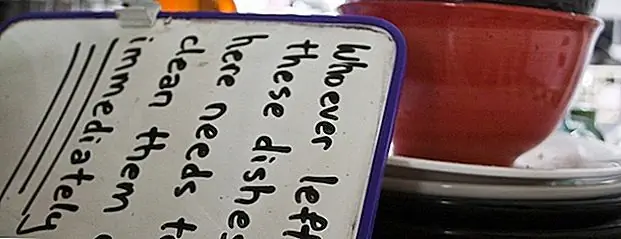 Whoever left
these dishes
here needs to
clean them
immediately